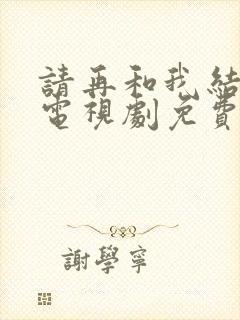 請再和我結
電視劇免費
謝學寧